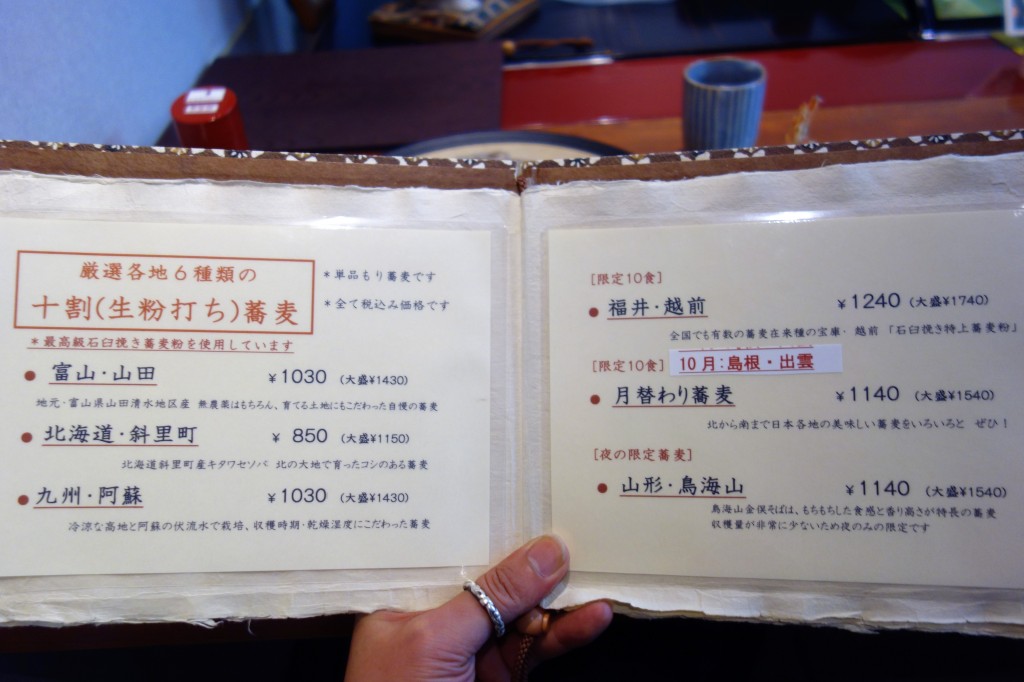 厳選各地6種類の
十割(生粉打ち)蕎麦
*単品もり蕎麦です
*全て税込み価格です
*最高級石臼挽き蕎麦粉を使用しています
● 富山・山田 ¥1030 (大盛¥1430)
地元・富山県山田清水地区産 無農薬はもちろん、育てる土地にもこだわった自慢の蕎麦
● 北海道・斜里町 ¥ 850 (大盛¥1150)
北海道斜里町産キタワセソバ 北の大地で育ったコシのある蕎麦
● 九州・阿蘇 ¥1030 (大盛¥1430)
冷涼な高地と阿蘇の伏流水で栽培、収穫時期・乾燥湿度にこだわった蕎麦
[限定10食]
● 福井・越前 ¥1240 (大盛¥1740)
全国でも有数の蕎麦在来種の宝庫・越前 「石臼挽き特上蕎麦粉」
[限定10食] 10月:島根・出雲
● 月替わり蕎麦 ¥1140 (大盛¥1540)
北から南まで日本各地の美味しい蕎麦をいろいろと ぜひ!
[夜の限定蕎麦]
● 山形・鳥海山 ¥1140 (大盛¥1540)
鳥海山金俣そばは、もちもちした食感と香り高さが特長の蕎麦
収穫量が非常に少ないため夜のみの限定です